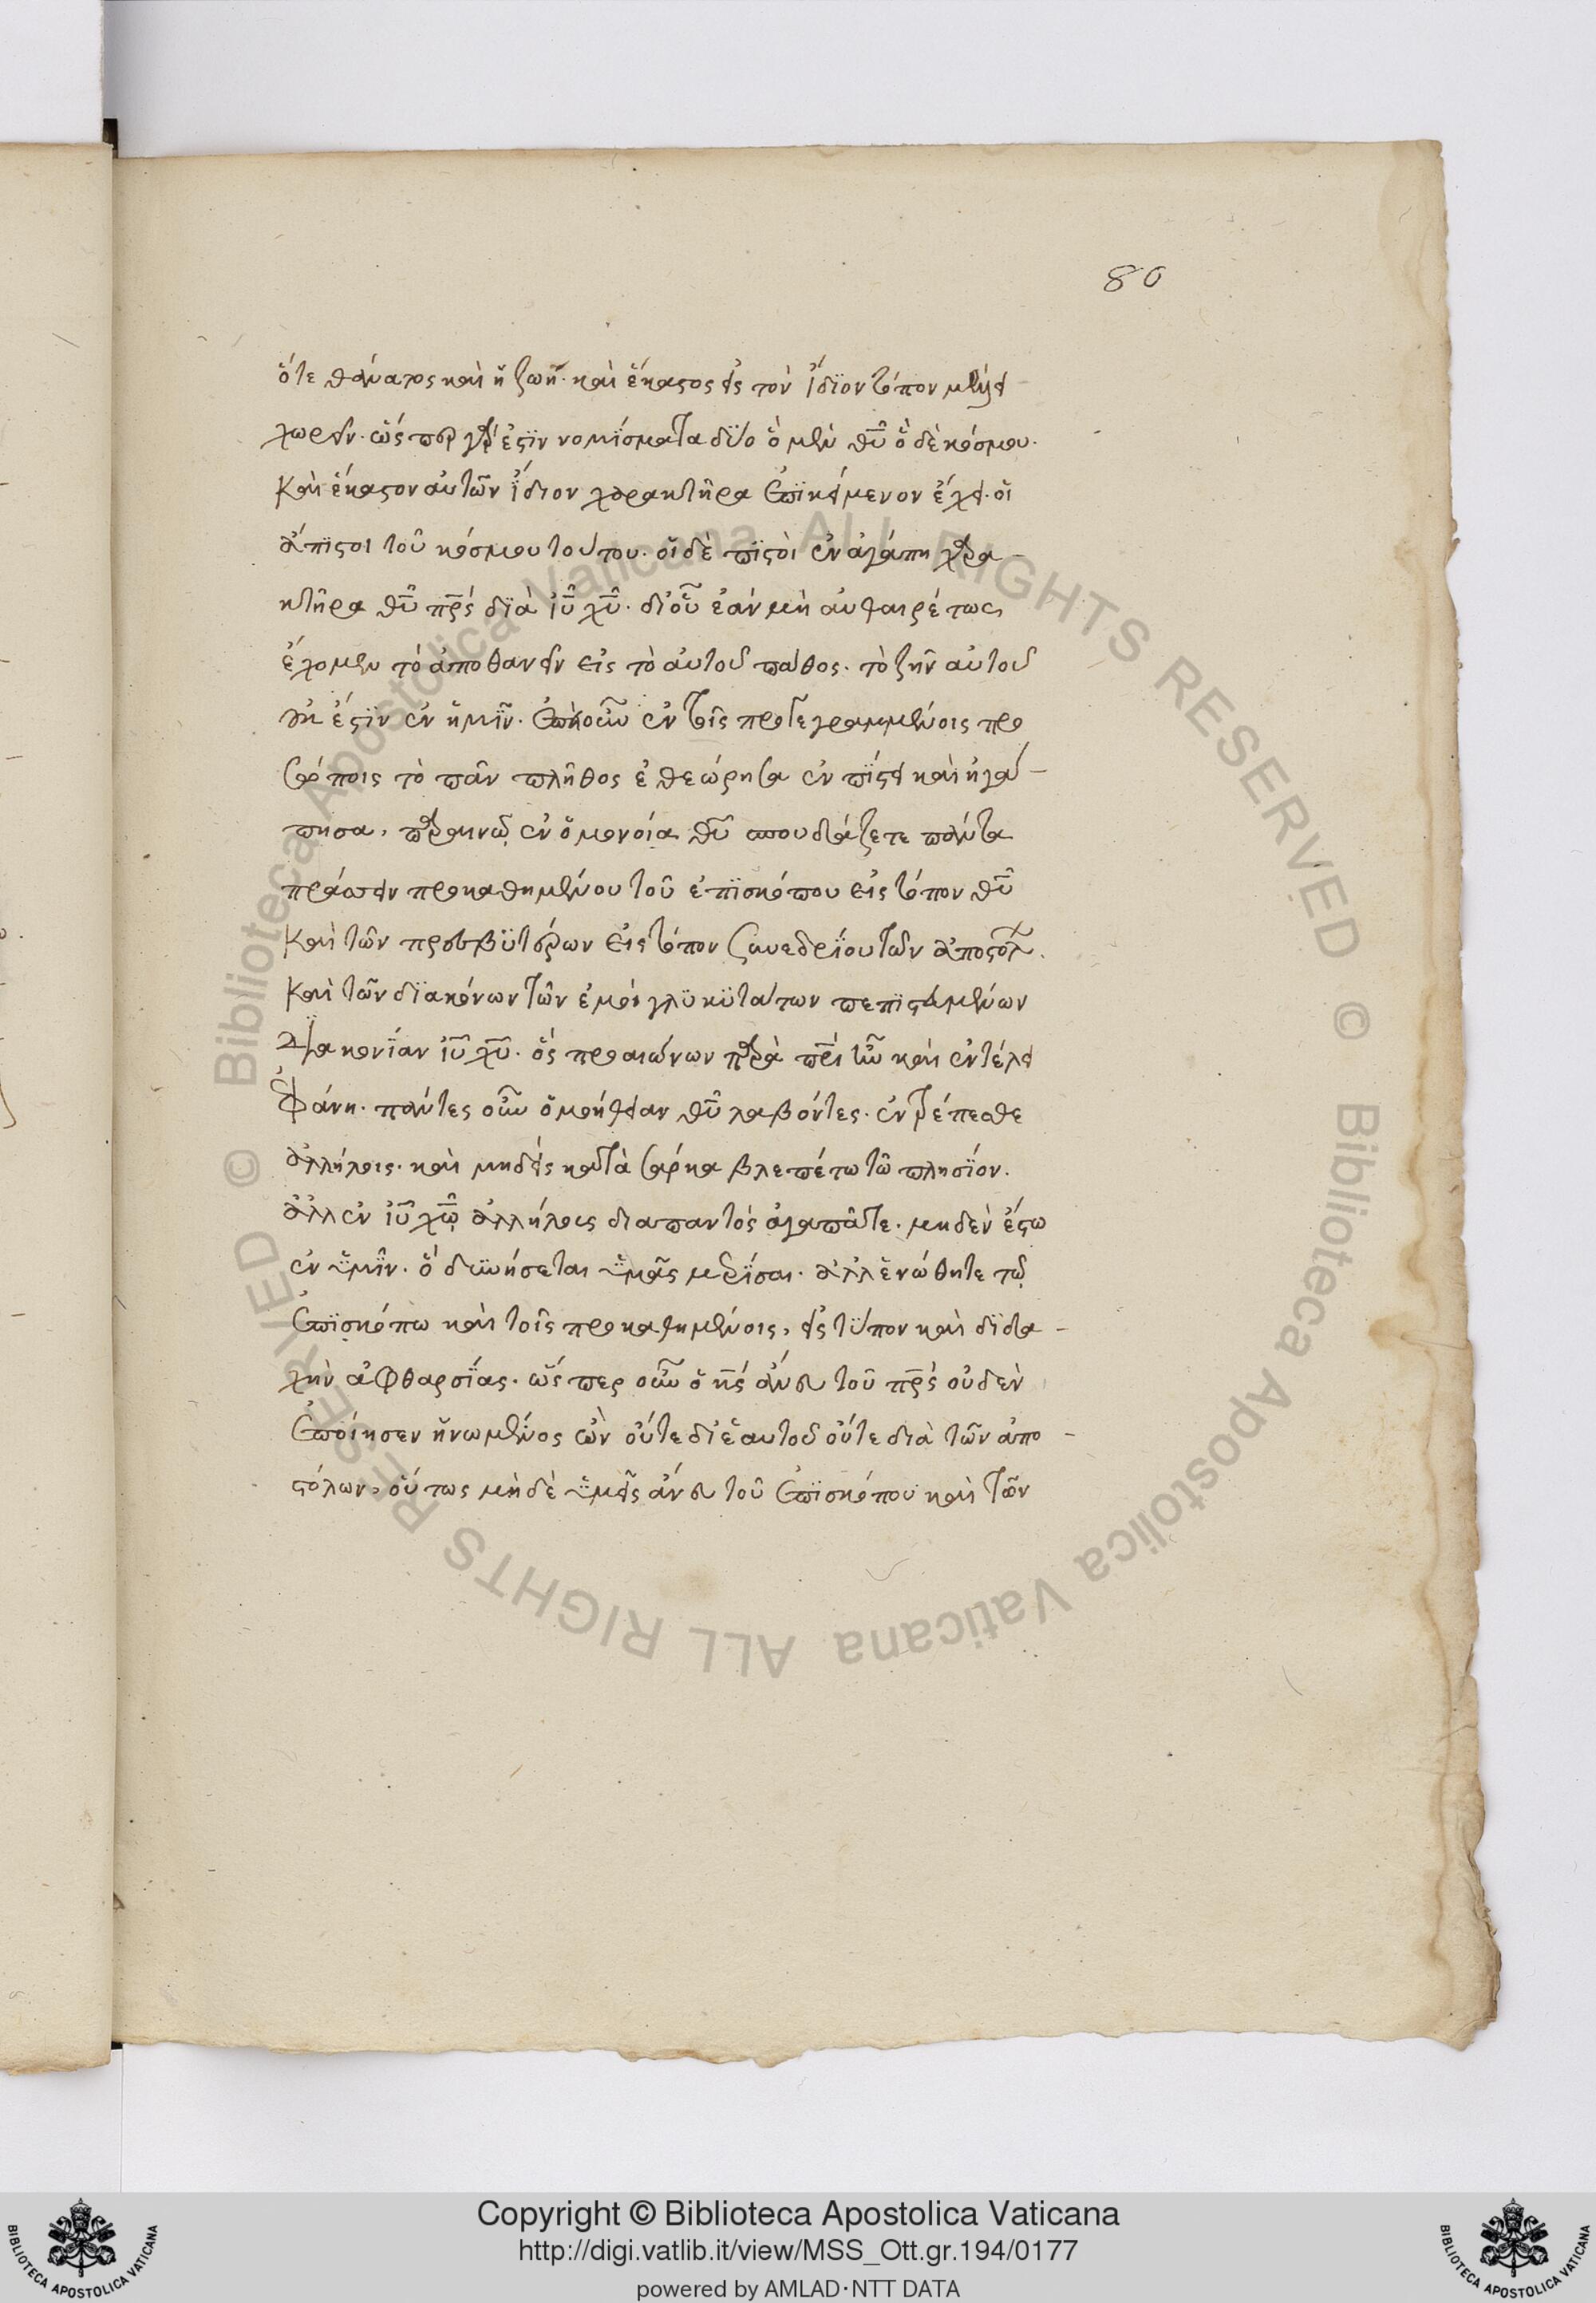 80
ὅτε θάνατος καὶ ἡ ζωή· καὶ ἕκαστος εἰς τὸν ἴδϊον τόπον μέλλει
χωρεῖν· ὥσπερ γάρ ἐστϊν νομίσματα δύο ὁ μὲν θῦ ὁ δὲ κόσμου·
Καὶ ἕκαστον αὐτῶν ἴδιον χαρακτῆρα ἐπϊκείμενον ἔχει· οἱ
ἄπϊστοι τοῦ κόσμου τούτου· οἱ δὲ πϊστοὶ ἐν ἀγάπη χαρα-
κτῆρα θῦ πρς διὰ ἰῦ χῦ· δι’ οὗ ἐὰν μὴ αὐθαιρέτως
ἔχομεν τὸ ἀποθανεῖν εἰς τὸ αὐτοῦ πάθος· τὸ ζῆν αὐτοῦ
οὐκ ἔστϊν ἐν ἡμῖν· ἐπεὶ οὖν ἐν τοῖς προγεγραμμένοις προ
σώποις τὸ πᾶν πλῆθος ἐθεώρησα ἐν πίστει καὶ ἠγά-
πησα, παραινῶ ἐν ὁμονοία θῦ σπουδάζετε πάντα
πράσσειν προκαθημένου τοῦ ἐπϊσκόπου εἰς τόπον θῦ
Καὶ τῶν πρεσβϋτέρων εἰς τόπον συνεδρίου τῶν ἀποστόλ.
Καὶ τῶν δϊακόνων τῶν ἐμοὶ γλϋκϋτάτων πεπϊστευμένων
δϊακονίαν ἰῦ χῦ· ὃς προ αἰώνων παρὰ πρὶ ἦν καὶ ἐν τέλει
ἐφάνη· πάντες οὖν ὁμοήθειαν θῦ λαβόντες· ἐντρέπεσθε
ἀλλήλοις· καὶ μηδεὶς κατὰ σάρκα βλεπέτω τῶ πλησίον.
ἀλλ ἐν ἰῦ χῶ ἀλλήλους διαπαντὸς ἀγαπᾶτε· μηδὲν ἔστω
ἐν ὑμῖν· ὃ δυνήσεται ὑμᾶς μερίσαι· ἀλλ ἑνώθητε τῷ
ἐπϊσκόπω καὶ τοῖς προκαθημένοις, εἰς τύπον καὶ δϊδα-
χὴν ἀφθαρσίας· ὥσπερ οὖν ὁ κς ἄνευ τοῦ πρς οὐδὲν
ἐποίησεν ἡνωμένος ὢν οὔτε δι’ ἑαυτοῦ οὔτε διὰ τῶν ἀπο-
στόλων, οὕτως μὴδὲ ὑμεῖς ἄνευ τοῦ ἐπϊσκόπου καὶ τῶν
© Biblioteca Apostolica Vaticana ALL RIGHTS RESERVED © Biblioteca Apostolica Vaticana ALL RIGHTS RESERVED
Copyright © Biblioteca Apostolica Vaticana
http://digi.vatlib.it/view/MSS_Ott.gr.194/0177
powered by AMLAD·NTT DATA
BIBLIOTECA APOSTOLICA VATICANA
BIBLIOTECA APOSTOLICA VATICANA